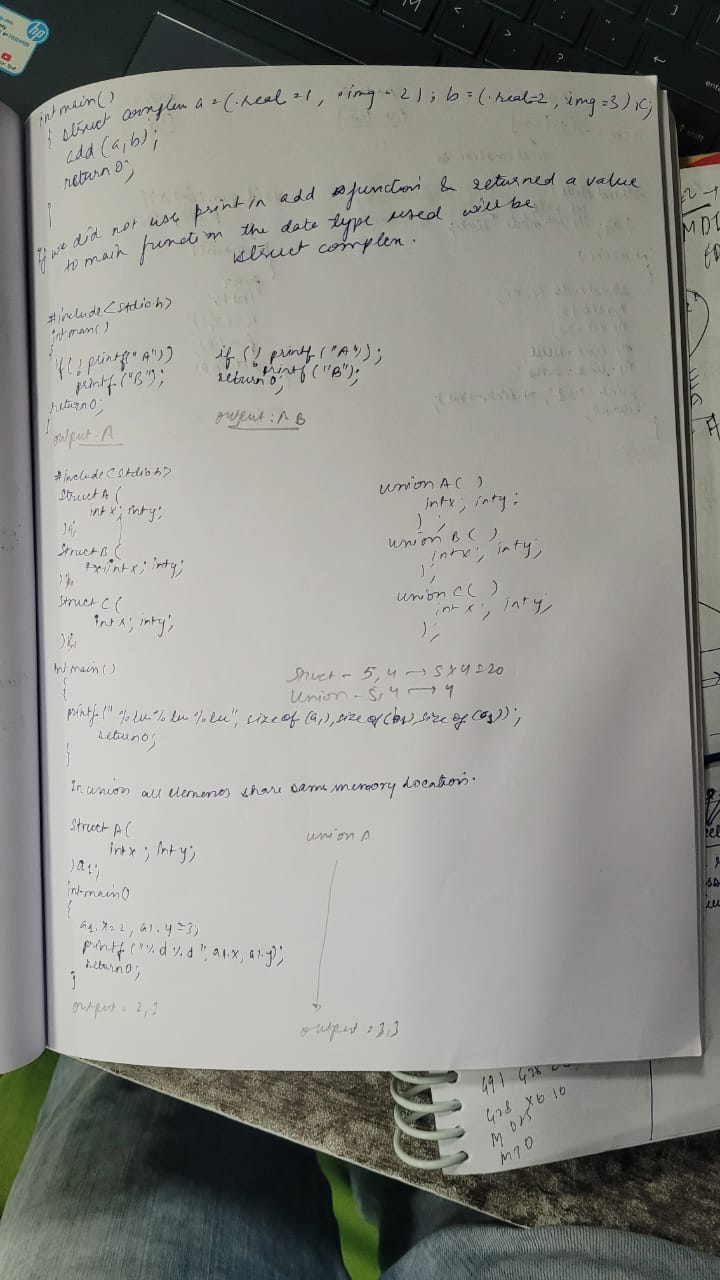 int main()
{ struct complex a = {.real = 1, .img = 2}; b = {.real=2, img =3}, c;
add (a,b);
return 0;
}
If we did not use print in add function & returned a value
to main function the date type used will be
struct complex.
#include <stdioh>
int main()
{
if (! printf("A"))
printf ("B");
return 0;
}
output - A
if (! printf ("A"));
printf ("B");
return 0;
output : A B
#include <stdioh>
Struct A {
int x; int y;
};
Struct B {
int x; int y;
};
Struct C {
int x; int y;
};
union A { }
int x; int y;
};
union B { }
int x; int y;
};
union C { }
int x; int y;
};
int main()
{
Struct - 5, 4 → 5x4=20
Union - 5, 4 → 4
printf (" %lu %lu %lu", size of (a1), size of (b1), size of (c1));
return 0;
}
In union all elements share same memory location.
Struct A {
int x ; int y;
} a1;
int main()
{
a1.x=2, a1.y=3;
printf ("%d %d", a1.x, a1.y);
return 0;
}
output = 2,3
union A
output = 3,3
491 428
428 x 6 10
M 0
M 7 0
hp
M